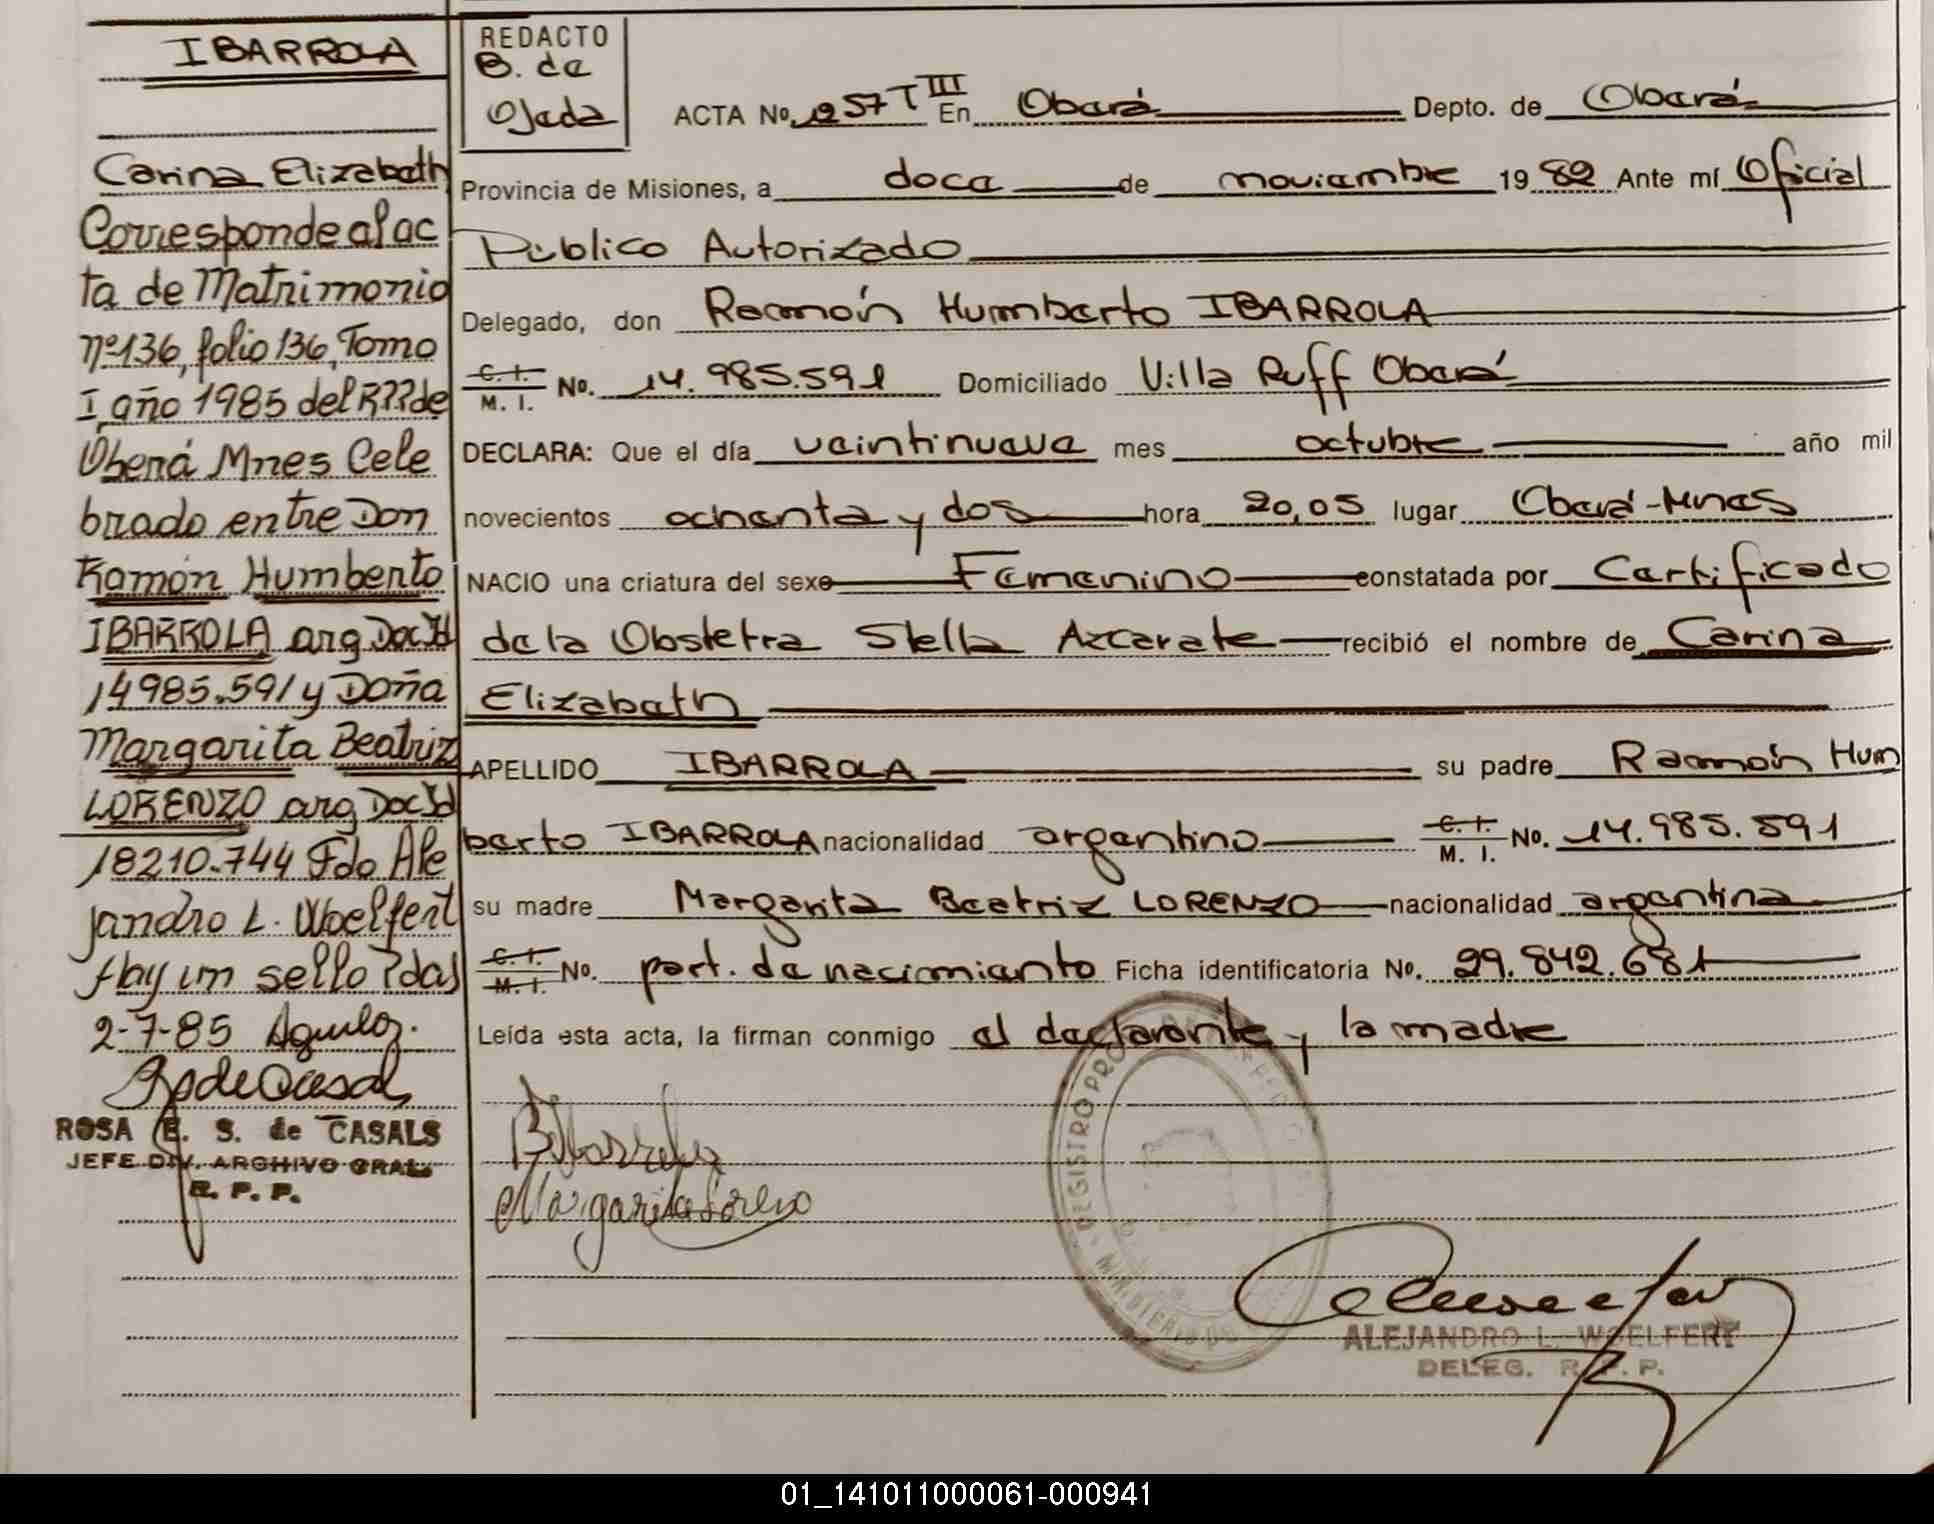 IBARROLA
Carina Elizabeth
Corresponde al ac
ta de Matrimonio
nº136, folio 136, Tomo
I año 1985 del R??de
Oberá Mnes Cele
brado entre Don
Ramón Humberto
IBARROLA arg Doc Id
14985.591 y Doña
Margarita Beatriz
LORENZO arg Doc Id
18210.744 Fdo Ale
jandro L. Woelfert
Hay un sello Pdas
2-7-85
ROSA E. S. de CASALS
JEFE DIV. ARCHIVO GRAL.
R. P. P.
REDACTO
B. de
Ojeda
ACTA No. 257 T III En Oberá Depto. de Oberá
Provincia de Misiones, a doce de noviembre 19 82 Ante mí Oficial
Público Autorizado
Delegado, don Ramón Humberto IBARROLA
C. I.
M. I. No. 14.985.591 Domiciliado Villa Ruff Oberá
DECLARA: Que el día veintinueve mes octubre año mil
novecientos ochenta y dos hora 20,05 lugar Oberá-Mnes
NACIO una criatura del sexo Femenino constatada por Certificado
de la Obstetra Stella Azcarate recibió el nombre de Carina
Elizabeth
APELLIDO IBARROLA su padre Ramón Hum
berto IBARROLA nacionalidad argentino C. I.
M. I. No. 14.985.591
su madre Margarita Beatriz LORENZO nacionalidad argentina
C. I.
M. I. No. part. de nacimiento Ficha identificatoria No. 29.842.681
Leída esta acta, la firman conmigo el declarante y la madre
Margarita Lorenzo
REGISTRO PRO
MINISTERIO DE
ALEJANDRO L. WOELFERT
DELEG. R. P. P.
01_141011000061-000941